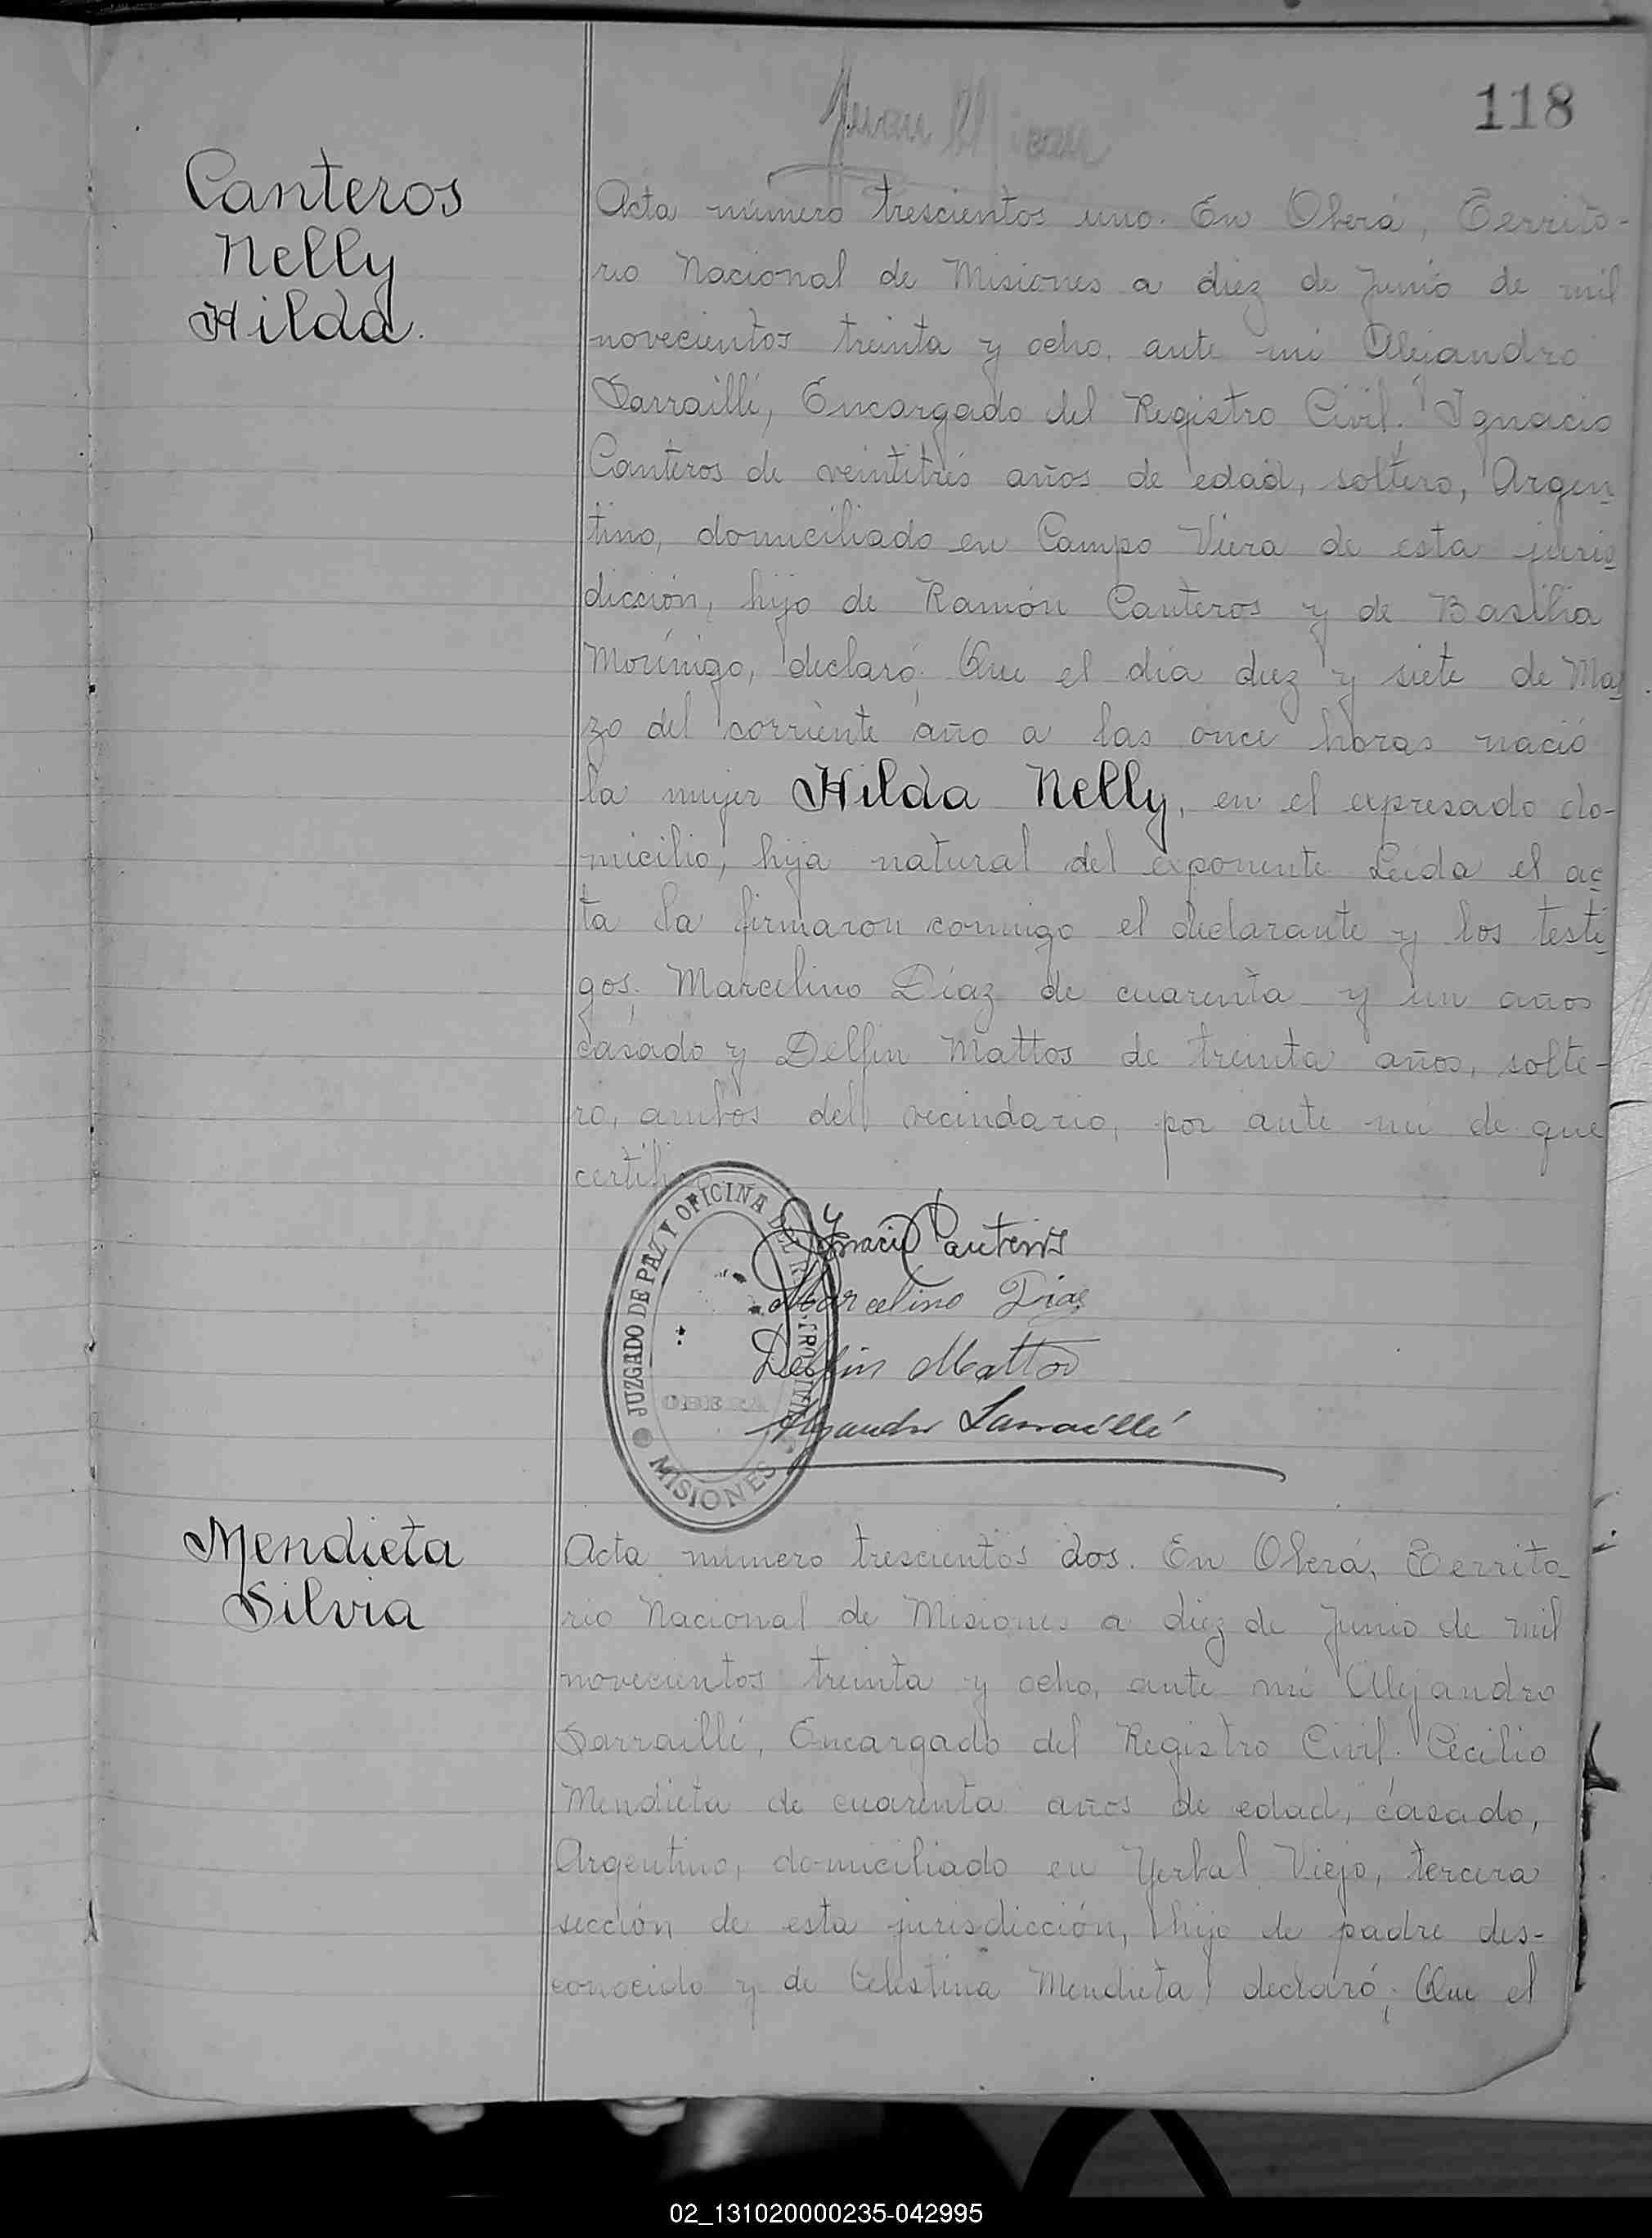 118
Juan
Canteros
Nelly
Hilda.
Acta número trescientos uno. En Oberá, Territo-
rio Nacional de Misiones a diez de Junio de mil
novecientos treinta y ocho, ante mi Alejandro
Larraillé, Encargado del Registro Civil. Ignacio
Canteros de veintitrés años de edad, soltero, Argen
tino, domiciliado en Campo Viera de esta juris
dicción, hijo de Ramón Canteros y de Basilia
Morínigo, declaró; Que el día diez y siete de Mar
zo del corriente año a las once horas nació
la mujer Hilda Nelly, en el expresado do-
micilio, hija natural del exponente Leida el ac
ta la firmaron conmigo el declarante y los testi
gos; Marcelino Díaz de cuarenta y un años
casado y Delfin Mattos de treinta años, solte-
ro, ambos del vecindario, por ante mi de que
certifi
JUZGADO DE PAZ Y OFICINA DEL
OBERA
MISIONES
Ignacio Canteros
Marcelino Diaz
Delfin Mattos
Alejandro Larraillé
Mendieta
Silvia
Acta número trescientos dos. En Oberá, Territo
rio Nacional de Misiones a diez de Junio de mil
novecientos treinta y ocho, ante mi Alejandro
Larraillé, Encargado del Registro Civil. Cecilio
Mendieta de cuarenta años de edad, casado,
Argentino, domiciliado en Yerbal Viejo, tercera
sección de esta jurisdicción, hijo de padre des-
conocido y de Celestina Mendieta, declaró; Que el
02_131020000235-042995